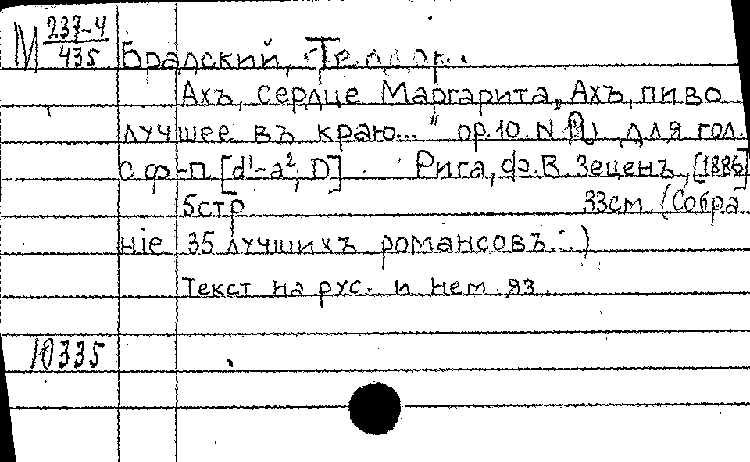 М 237-4
435
Брадский, Теодор.
Ахъ, сердце Маргарита, „Ахъ, пиво
лучшее въ краю..." ор.10. N , для гол.
с ф-п. [d'-a², D]. Рига, ф. В. Зеценъ, [1886]
5стр 33см (Собра
нiе 35 лучшихъ романсовъ..)
Текст на рус. и нем. яз.
10335